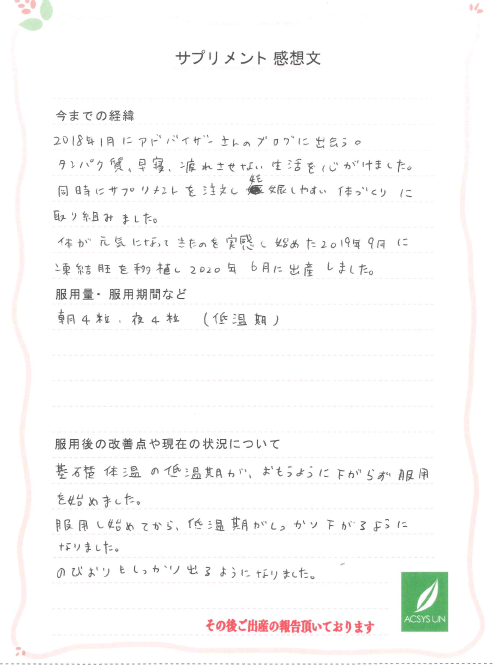 サプリメント 感想文
今までの経緯
2018年1月にアドバイザーさんのブログに出会う。
タンパク質、早寝、疲れさせない生活を心がけました。
同時にサプリメントを注文し妊娠しやすい体づくりに
取り組みました。
体が元気になってきたのを実感し始めた2019年9月に
凍結胚を移植し2020年6月に出産しました。
服用量・服用期間など
朝4粒、夜4粒 (低温期)
服用後の改善点や現在の状況について
基礎体温の低温期が、おもうように下がらず服用
を始めました。
服用し始めてから、低温期がしっかり下がるように
なりました。
のびおりもしっかり出るようになりました。
その後ご出産の報告頂いております
ACSYSUN